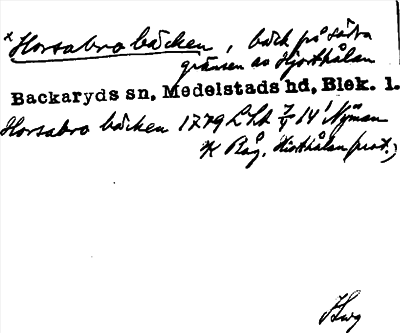 x Horsabro bäcken, bäck på södra
gränsen av Hjorthålan
Backaryds sn, Medelstads hd, Blek. l.
Horsabro bäcken 1779 LSA 7/V 14' Nyman
K Råg. Hiorthålan prot.)